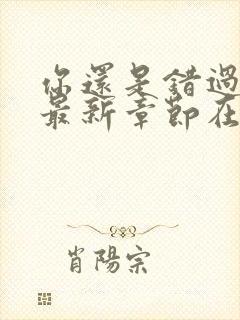 你還是錯過
最新章節在
肖陽宗